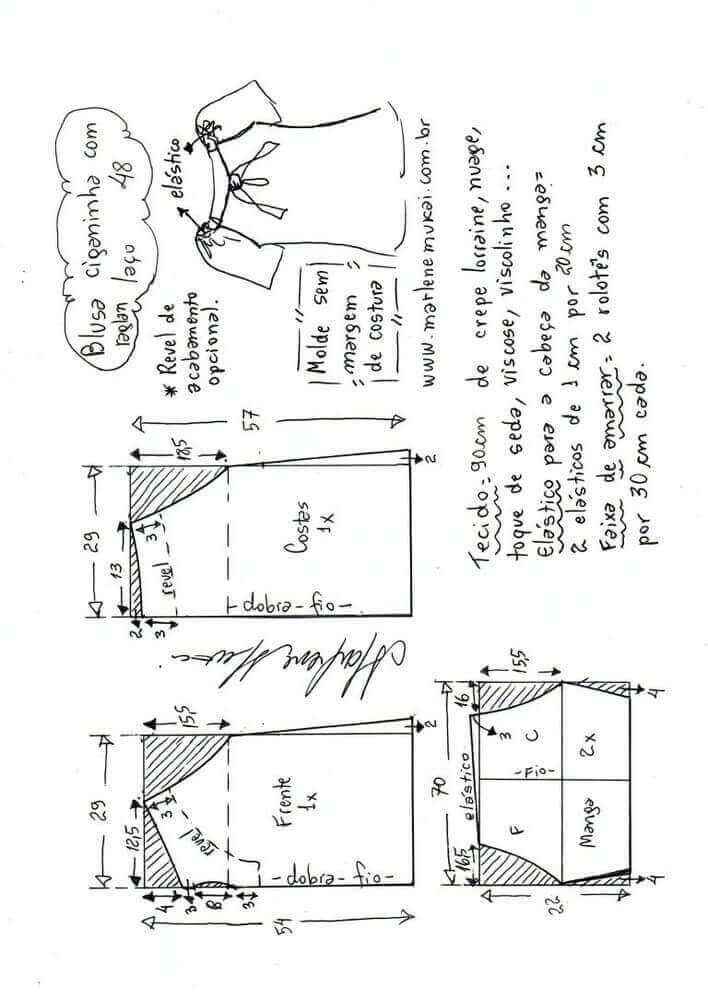 Blusa ciganinha com
raglan laço 48
elástico
* Revel de
acabamento
opcional.
Molde sem
margem
de costura
www.marlenemukai.com.br
Tecido = 90cm de crepe lorraine, nuage,
toque de seda, viscose, viscolinho ...
Elástico para a cabeça da manga =
2 elásticos de 1 cm por 20cm
Faixa de amarrar = 2 rolotês com 3 cm
por 30 cm cada.
29
13
18,5
57
2
3
3
revel
Costas
1x
-fio-dobra-
2
Marlene Mukai
29
12,5
15,5
54
4
3
8
3
3
revel
Frente
1x
-fio-dobra-
2
70
elástico
16,5
16
3
15,5
22
F
C
-Fio-
Manga
2x
4
4